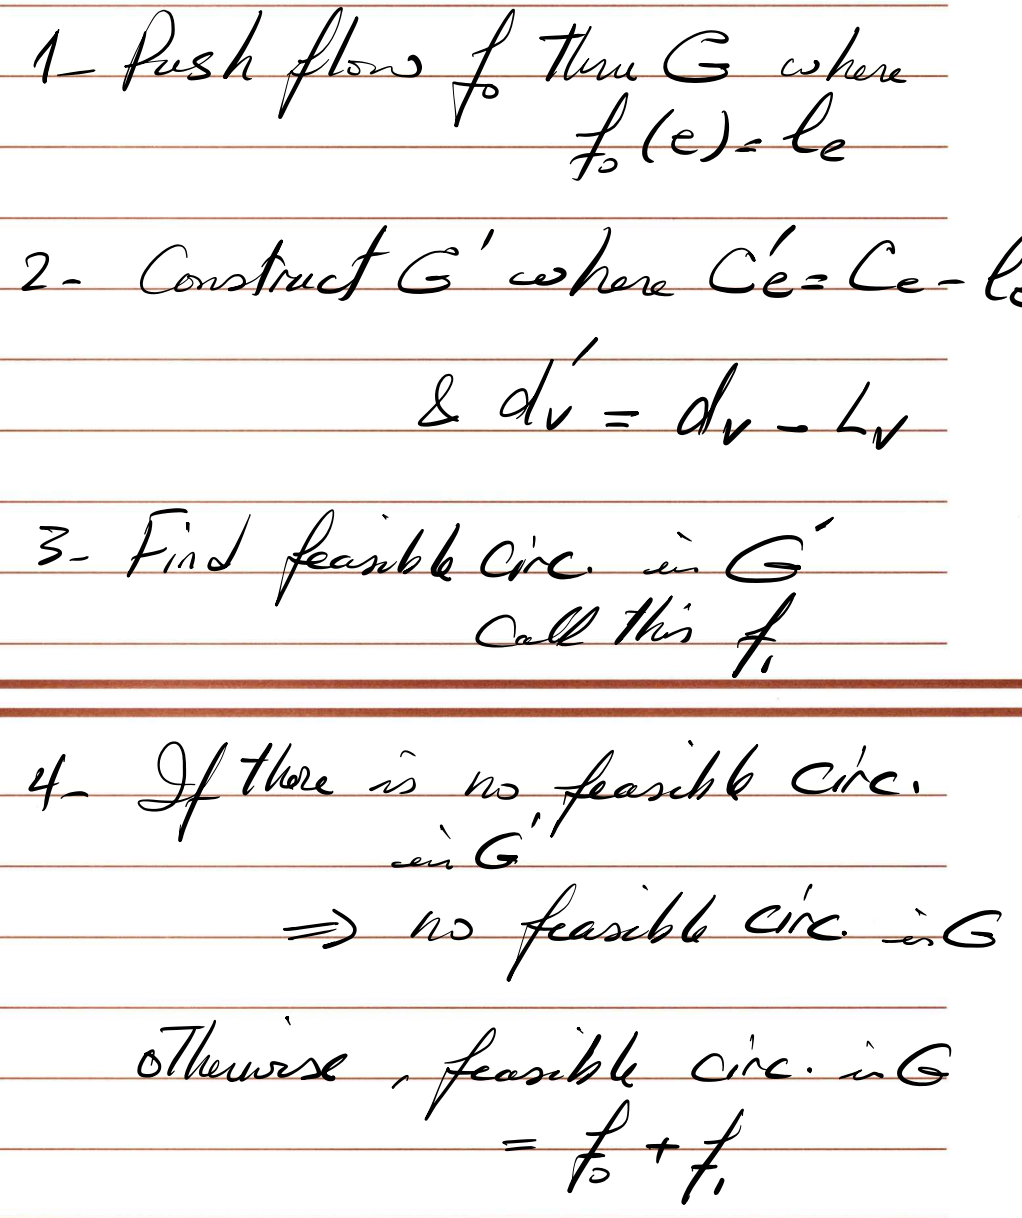 1- Push flow f₀ thru G where
f₀(e) = lₑ
2- Construct G' where Cₑ' = Cₑ - lₑ
& dᵥ' = dᵥ - Lᵥ
3- Find feasible circ. in G'
Call this f₁
4- If there is no feasible circ.
in G'
⇒ no feasible circ. in G
otherwise, feasible circ. in G
= f₀ + f₁